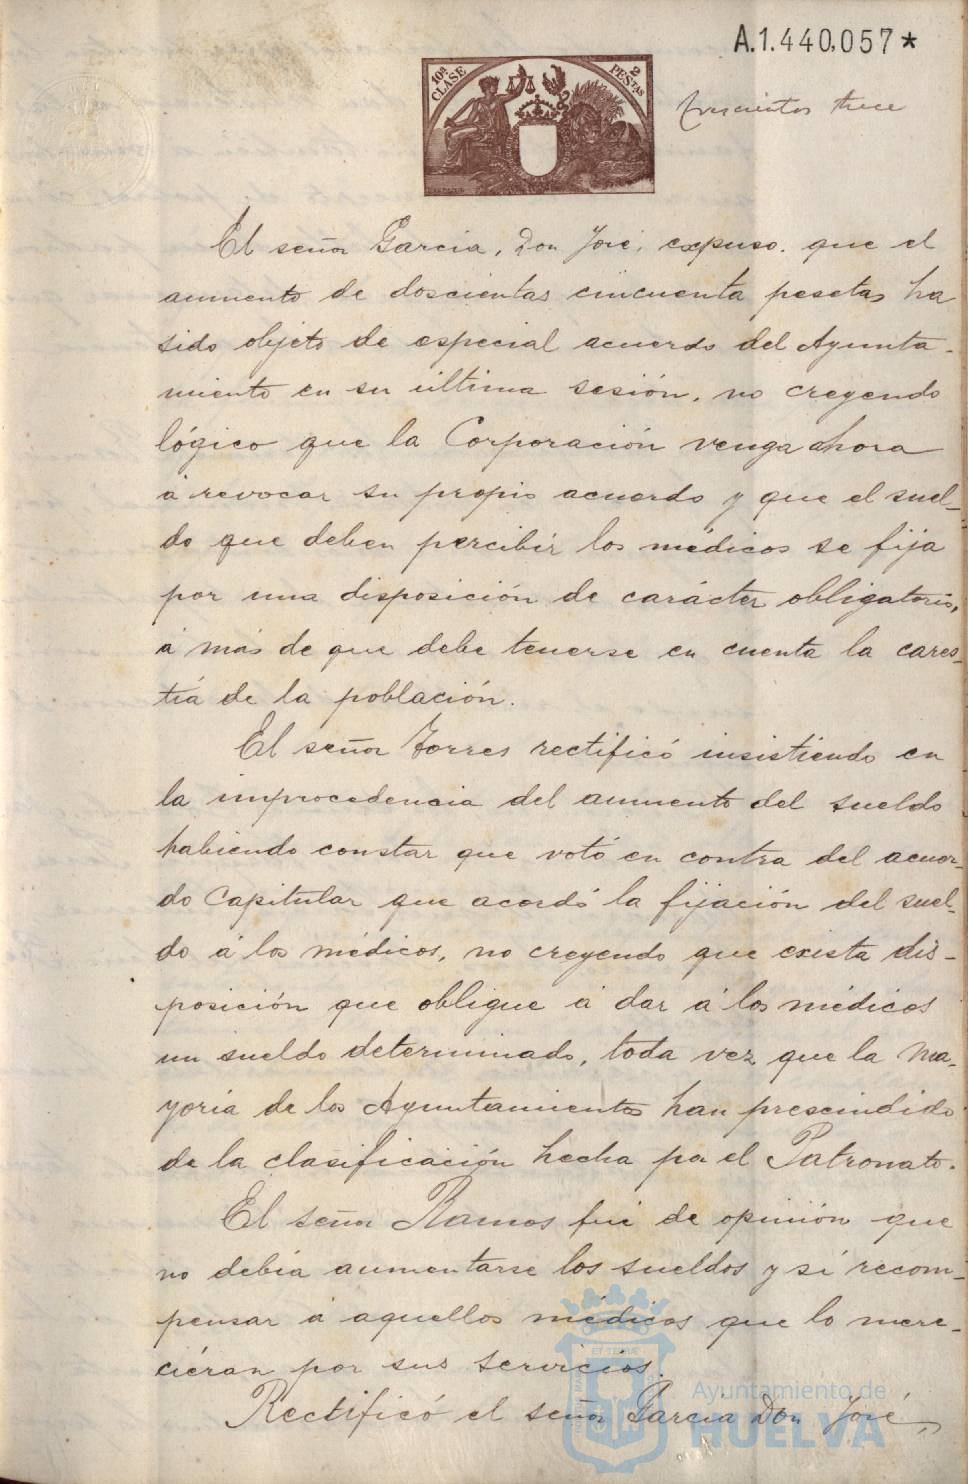 A.1.440,057*
10ª CLASE
2 PESTAS
trescientos trece
El señor García, Don José, expuso. que el
aumento de doscientas cincuenta pesetas ha
sido objeto de especial acuerdo del Ayunta-
miento en su última sesión, no creyendo
lógico que la Corporación venga ahora
á revocar su propio acuerdo y que el suel-
do que deben percibir los médicos se fija
por una disposición de carácter obligatorio,
á más de que debe tenerse en cuenta la cares-
tía de la población.
El señor Torres rectificó insistiendo en
la improcedencia del aumento del sueldo
habiendo constar que votó en contra del acuer-
do Capitular que acordó la fijación del suel-
do á los médicos, no creyendo que exista dis-
posición que obligue á dar á los médicos
un sueldo determinado, toda vez que la ma-
yoría de los Ayuntamientos han prescindido
de la clasificación hecha por el Patronato.
El señor Ramos fué de opinión que
no debía aumentarse los sueldos y sí recom-
pensar á aquellos médicos que lo mere-
cieran por sus servicios.
Rectificó el señor García Don José,
Ayuntamiento de
HUELVA